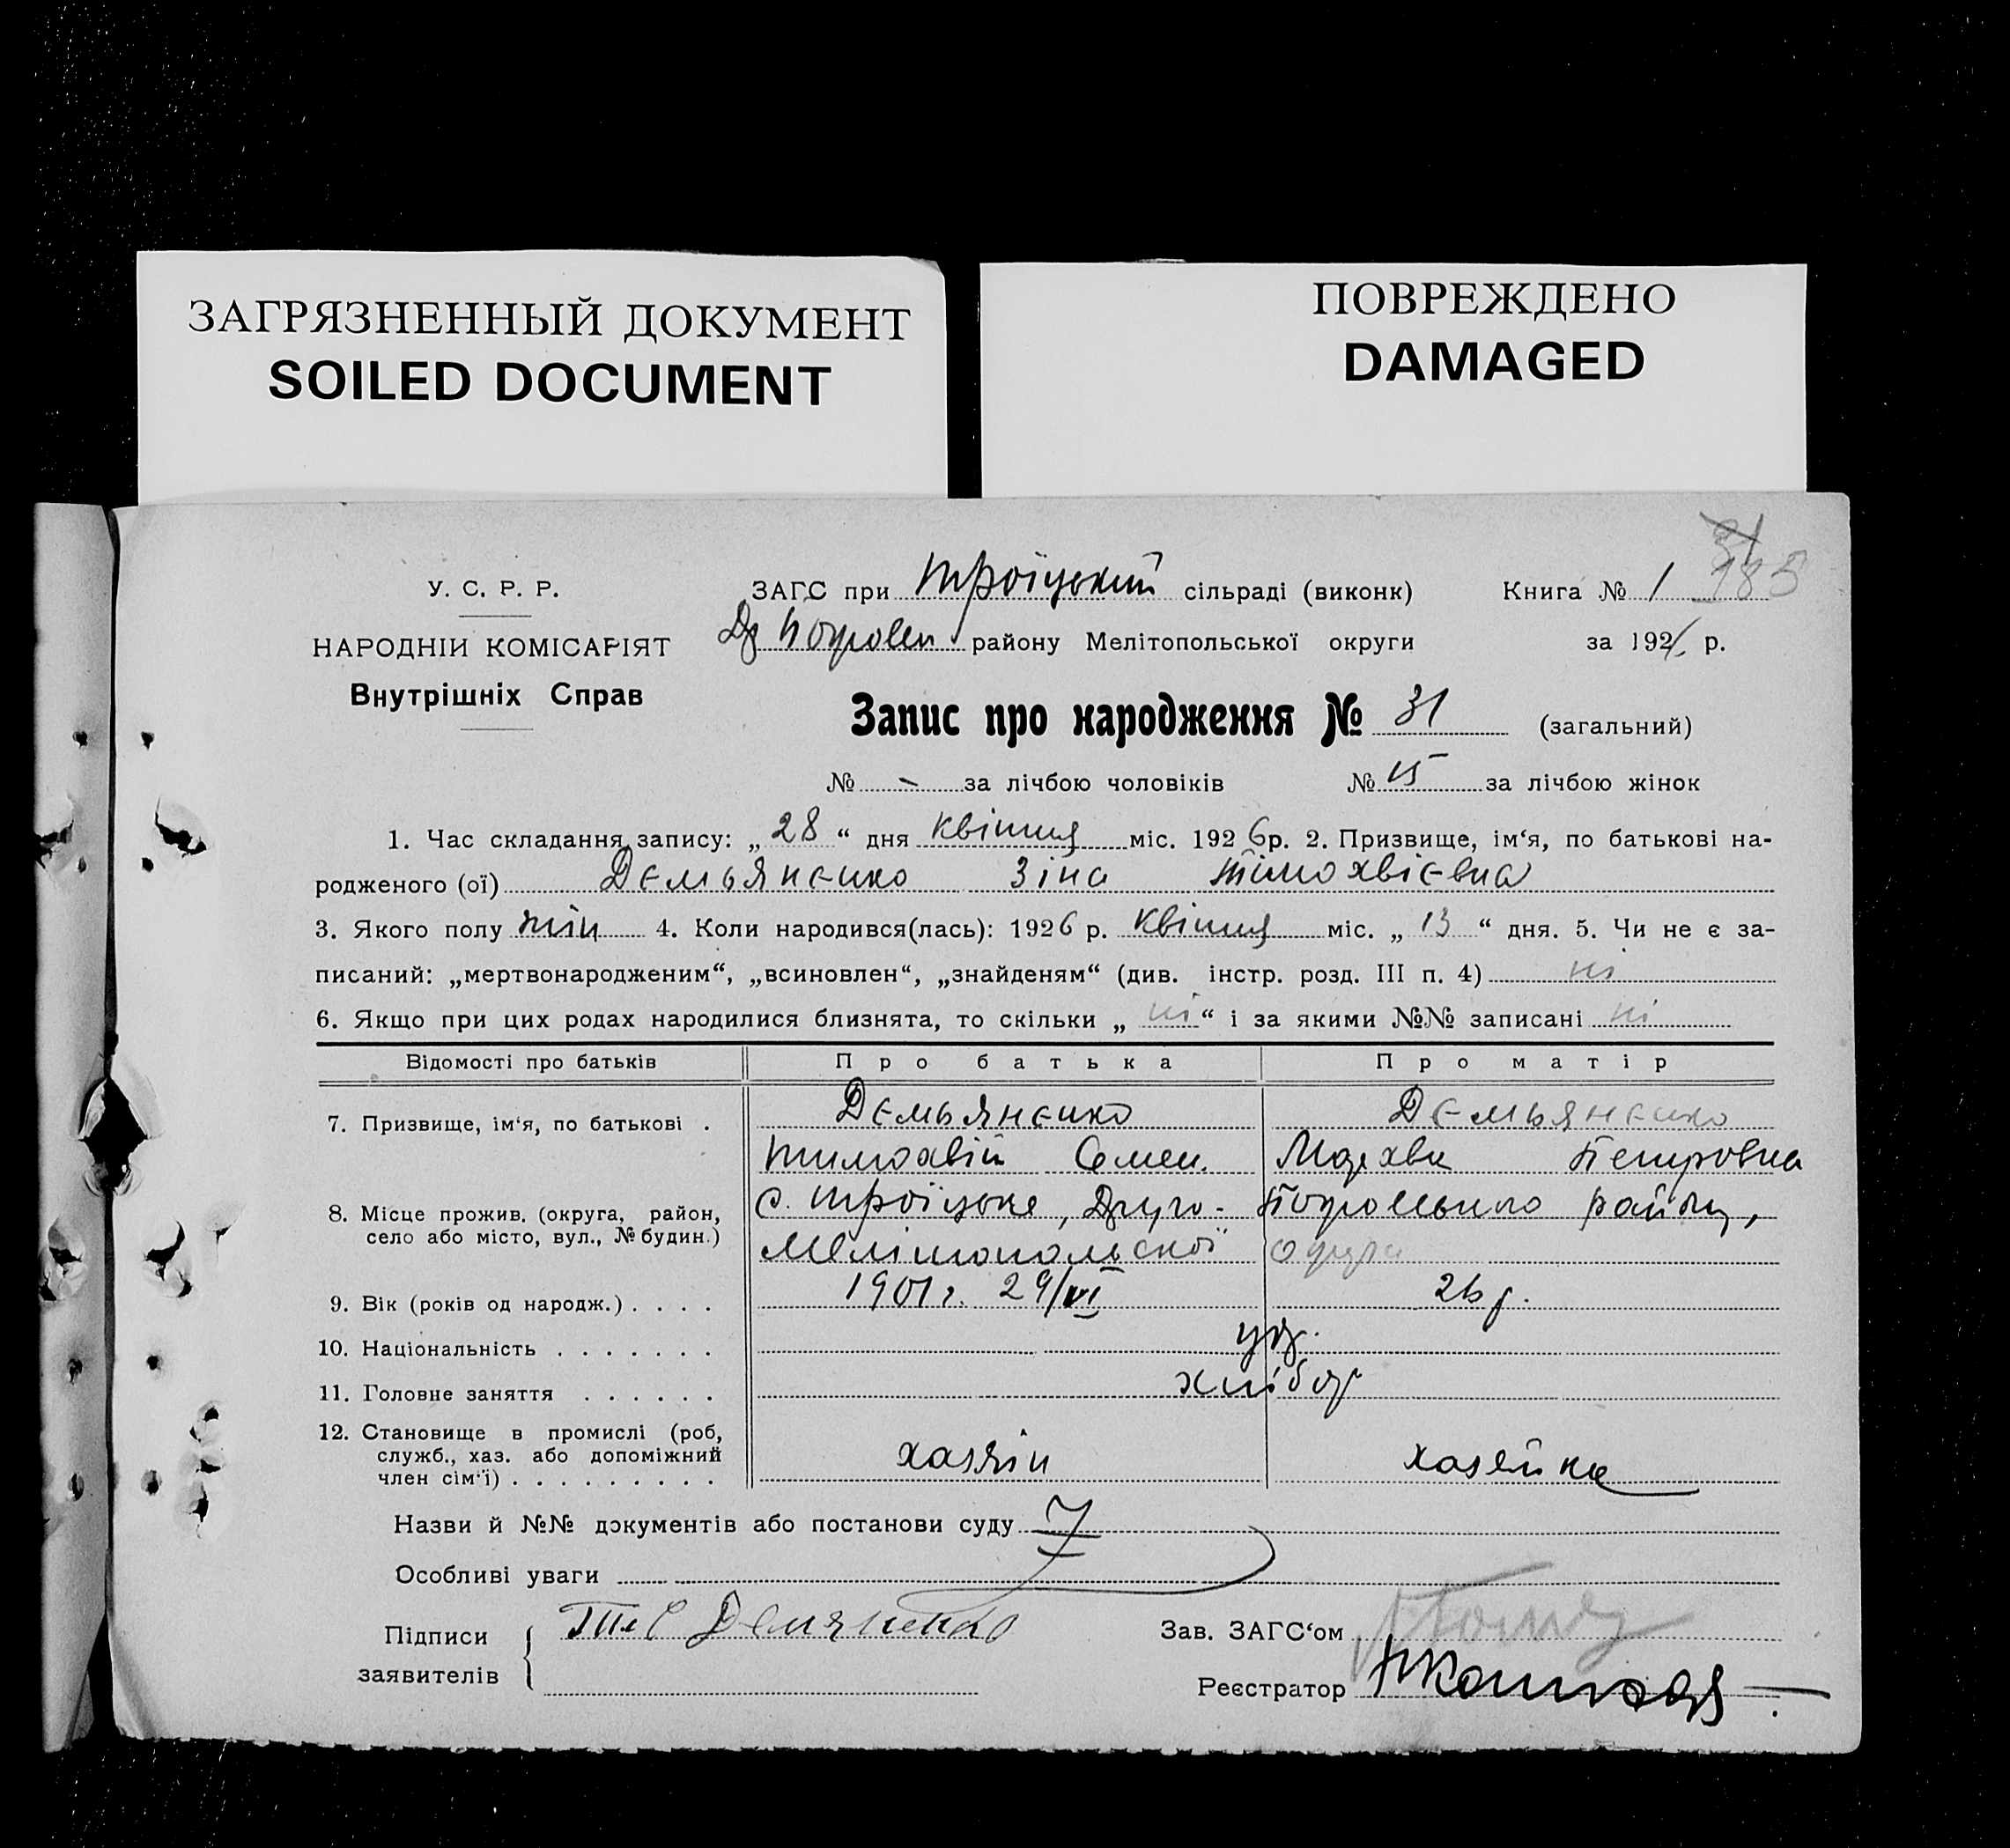 ЗАГРЯЗНЕННЫЙ ДОКУМЕНТ
SOILED DOCUMENT
ПОВРЕЖДЕНО
DAMAGED
31
185
У. С. Р. Р.
НАРОДНІИ КОМІСАРІЯТ
Внутрішніх Справ
ЗАГС при Троїцький сільраді (виконк)
району Мелітопольської округи
Книга № 1
за 192 р.
Запис про народження № 31 (загальний)
№ - за лічбою чоловіків № 15 за лічбою жінок
1. Час складання запису: „ 28 “ дня квітня міс. 1926 р. 2. Призвище, ім‘я, по батькові на-
родженого (ої) Дємьянєнко Зіна Тімохвієвна
3. Якого полу жін 4. Коли народився(лась): 1926 р. квітня міс. „ 13 “ дня. 5. Чи не є за-
писаний: „мертвонародженим“, „всиновлен“, „знайденям“ (див. інстр. розд. III п. 4) ні
6. Якщо при цих родах народилися близнята, то скільки „ ні “ і за якими №№ записані ні
Відомості про батьків Про батька Про матір
7. Призвище, ім‘я, по батькові . Дємьянєнко Дємьянєнко
Тимохвій Семен. Петровна
8. Місце прожив. (округа, район, с. Троїцьке, району,
село або місто, вул., № будин.) Мелітопольскої округи
9. Вік (років од народж.) . . . . 1901 г. 29/VI 26 р.
10. Національність . . . . . . . укр.
11. Головне заняття . . . . . . хлібор
12. Становище в промислі (роб,
служб., хаз. або допоміжний
член сім‘ї) . . . . . . . . . хазяін хазяйка
Назви й №№ документів або постанови суду
Особливі уваги
Підписи
заявителів
Зав. ЗАГС‘ом
Реєстратор